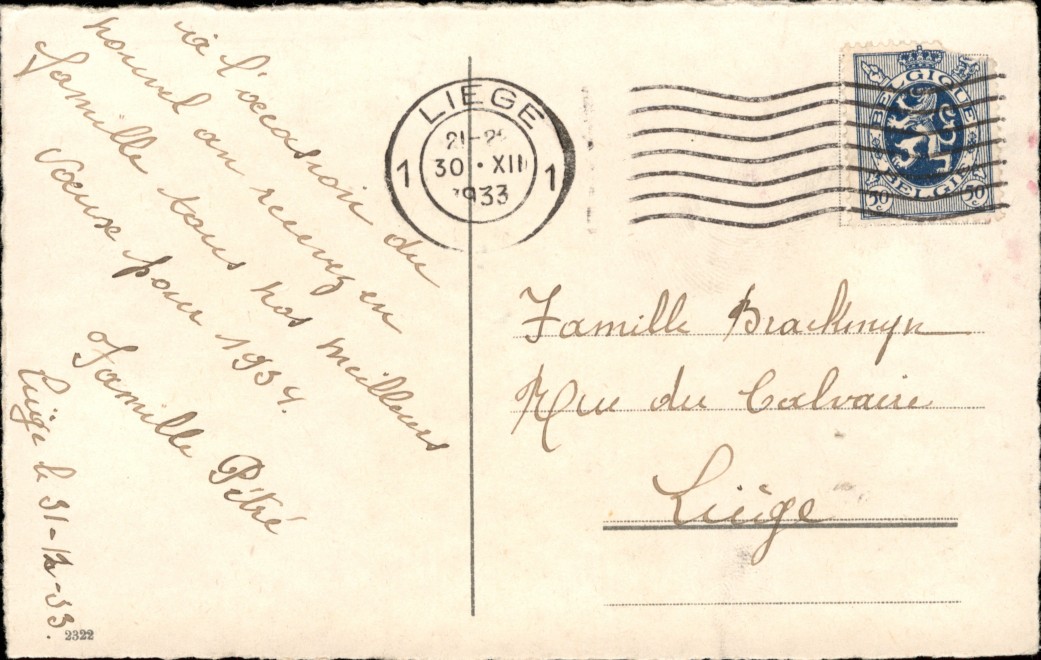 à l'occasion du
nouvel an recevez en
famille tous nos meilleurs
Voeux pour 1934.
Famille Pétré
Liège le 31-12-33.
2322
LIEGE
21-2
30 · XII
1933
1
1
BELGIQUE
BELGIË
50
50
Famille Brackmyn
Rue du Calvaire
Liège